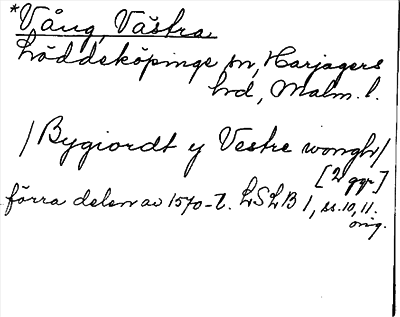 *Vång, Västra
Löddeköpinge sn, Harjagers
hd, Malm. l.
/Bygiordt y Vestre wongh/
[2 ggr]
förra delen av 1570-t. LSLB 1, ss. 10, 11.
orig.